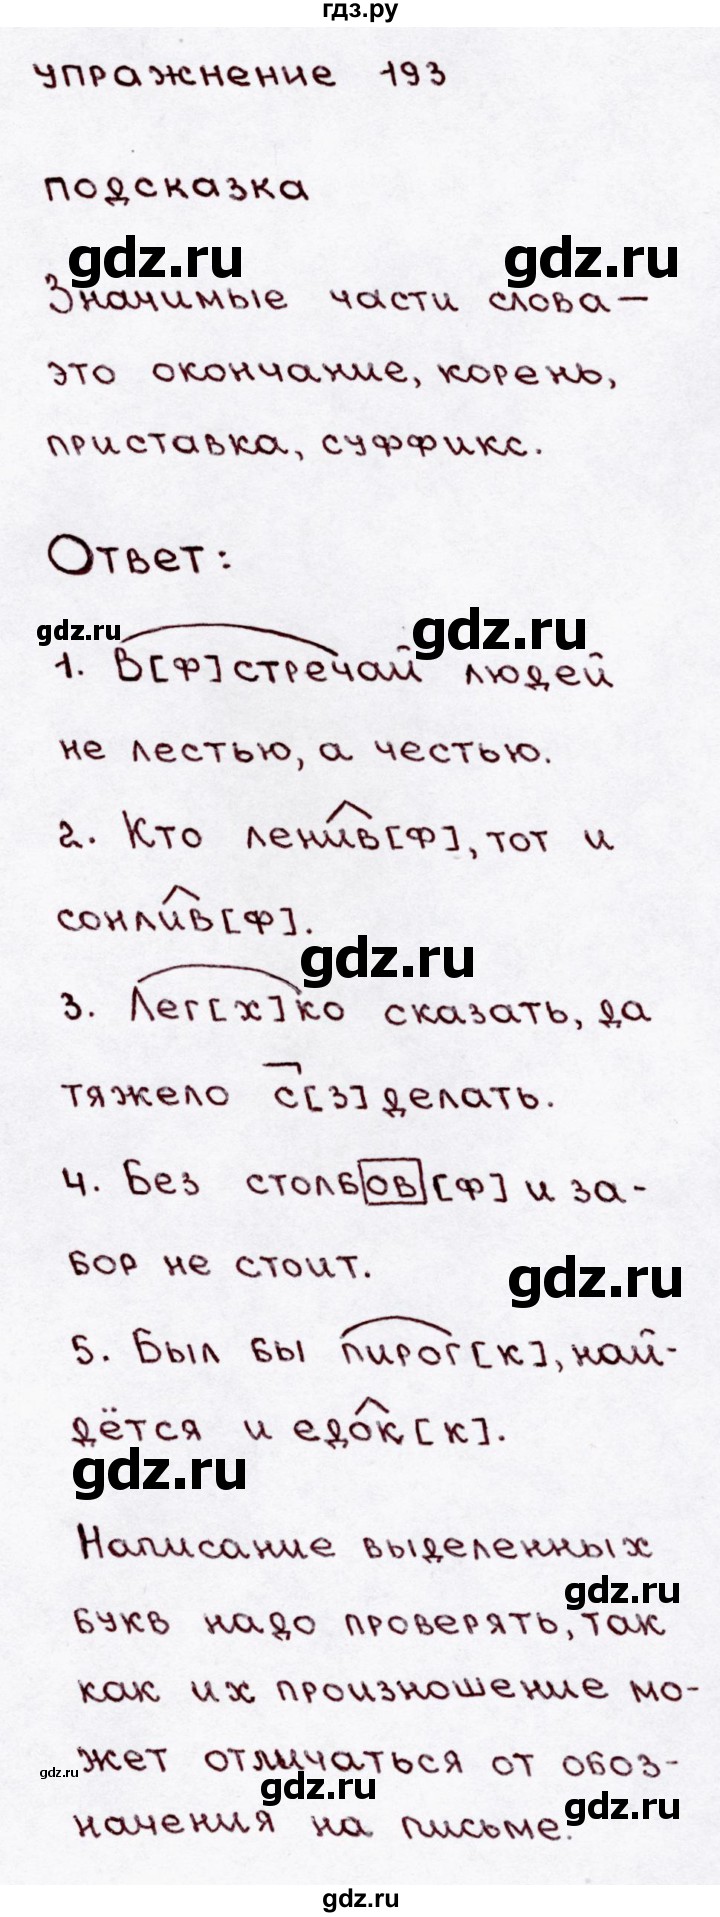 гдз.ру
упражнение 193
подсказка
gdz.ru gdz.ru
Значимые части слова —
это окончание, корень,
приставка, суффикс.
Ответ:
gdz.ru gdz.ru
1. В[ф]стречай людей
не лестью, а честью.
2. Кто ленив[ф], тот и
сонлив[ф].
gdz.ru
3. Лег[х]ко сказать, да
тяжело с[з]делать.
4. Без столбов[ф] и за-
бор не стоит.
gdz.ru
5. Был бы пирог[к], най-
дётся и едок[к].
gdz.ru
Написание выделенных
gdz.ru
букв надо проверять, так
как их произношение мо-
жет отличаться от обоз-
gdz.ru gdz.ru gdz.ru
начения на письме.
gdz.ru